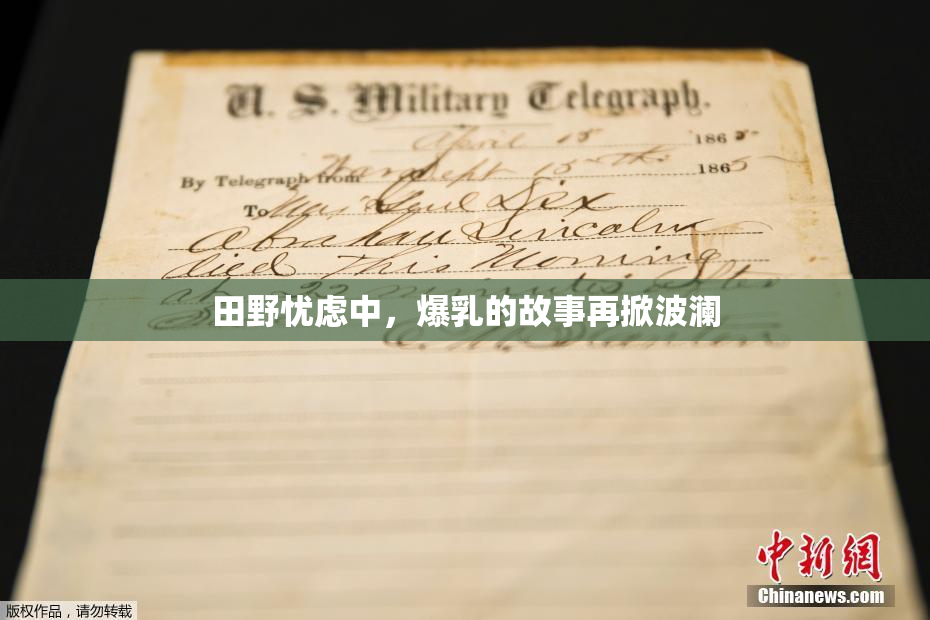 U. S. Military Telegraph.
April 15 1865
By Telegraph from War Dept 15th 1865
To Maj Genl Dix
Abraham Lincoln
died This Morning
at 22 minutes after
田野忧虑中，爆乳的故事再掀波澜
E. M. Stanton
中新网
Chinanews.com
版权作品，请勿转载